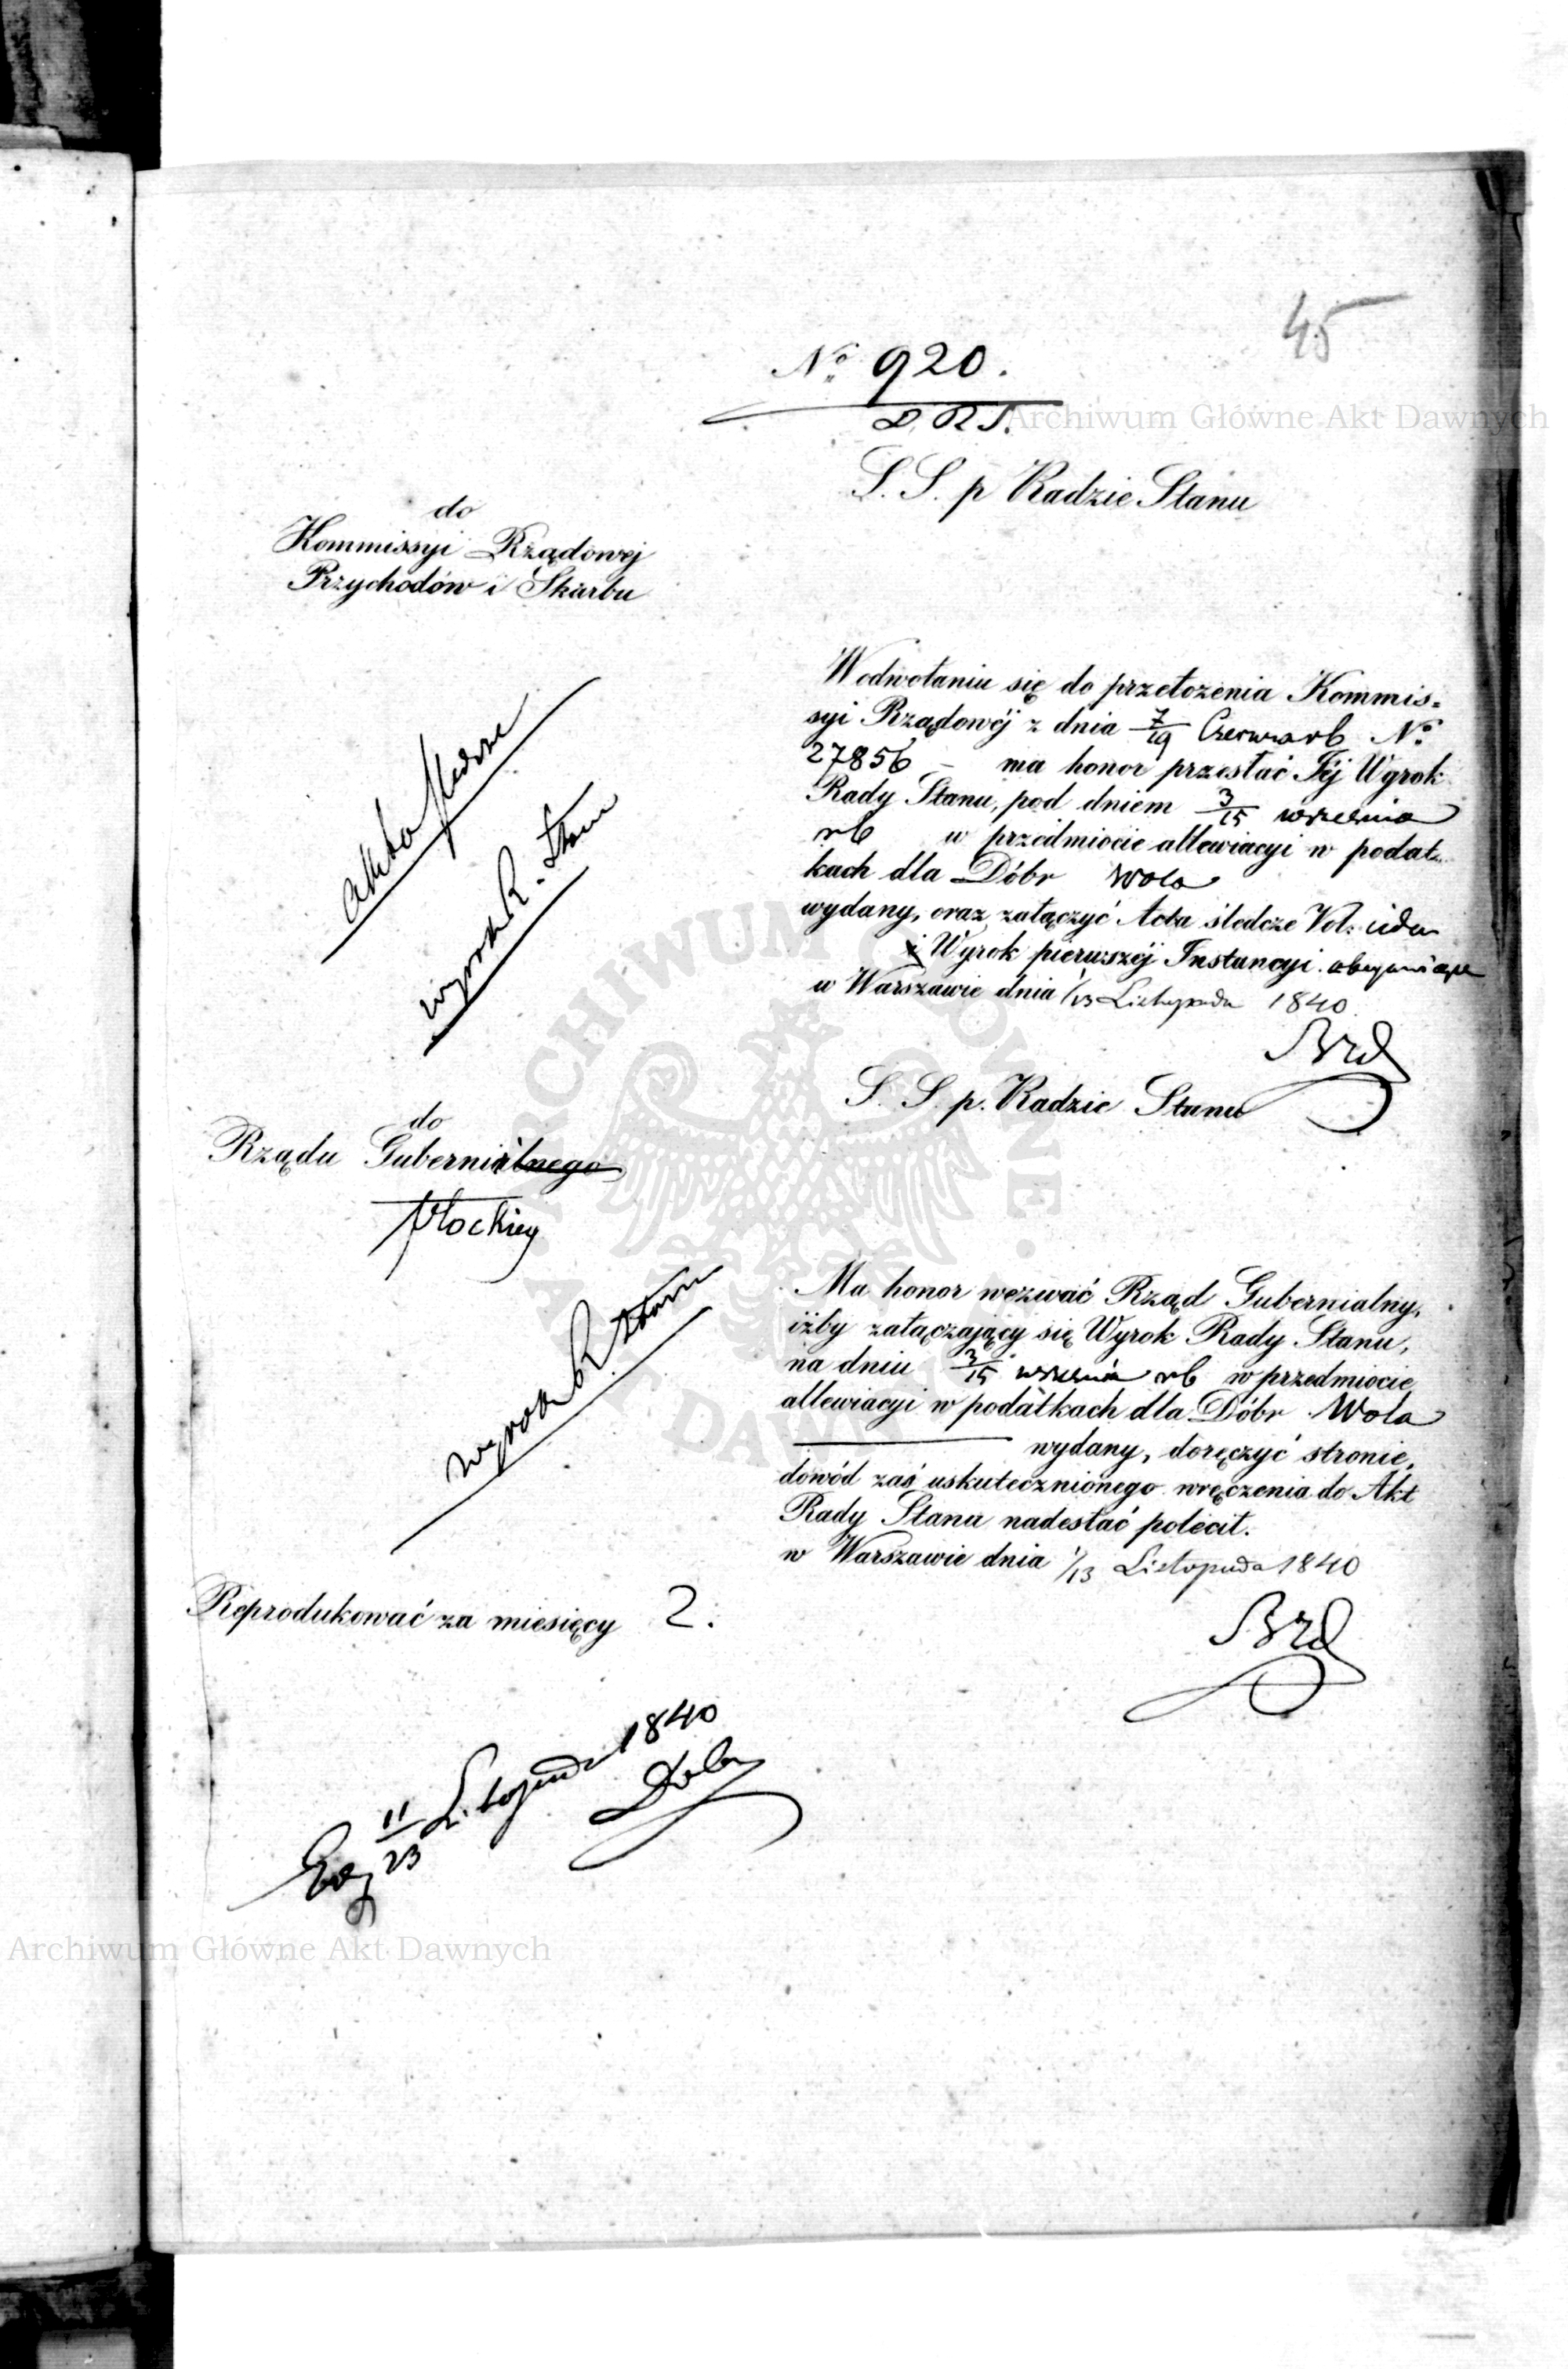 45
No 920.
D.R.S.
S. S. p Radzie Stanu
do
Kommissyi Rządowej
Przychodów i Skarbu
W odwołaniu się do przełożenia Kommis=
syi Rządowéj z dnia 7/19 Czerwca rb No
27856 – ma honor przesłać Téj Wyrok
Rady Stanu, pod dniem 3/15 września
rb w przedmiocie allewiacyi w podat=
kach dla Dóbr Wola
wydany, oraz załączyć Acta śledcze Vol: jeden
i Wyrok pierwszéj Instancyi obejmujące
w Warszawie dnia 1/13 Listopada 1840
akta śledcze
wyrok R. Stanu
S. S. p. Radzie Stanu
do
Rządu Gubernialnego
Płockiego
Ma honor wezwać Rząd Gubernialny,
iżby załączający się Wyrok Rady Stanu,
na dniu 3/15 września rb w przedmiocie
allewiacyi w podatkach dla Dóbr Wola
wydany, doręczyć stronie,
dowód zaś uskutecznionego wręczenia do Akt
Rady Stanu nadesłać polécił.
w Warszawie dnia 1/13 Listopada 1840
wyrok R. Stanu
Reprodukować za miesięcy 2.
11/23 Listopada 1840
Archiwum Główne Akt Dawnych
Archiwum Główne Akt Dawnych
ARCHIWUM GŁÓWNE AKT DAWNYCH